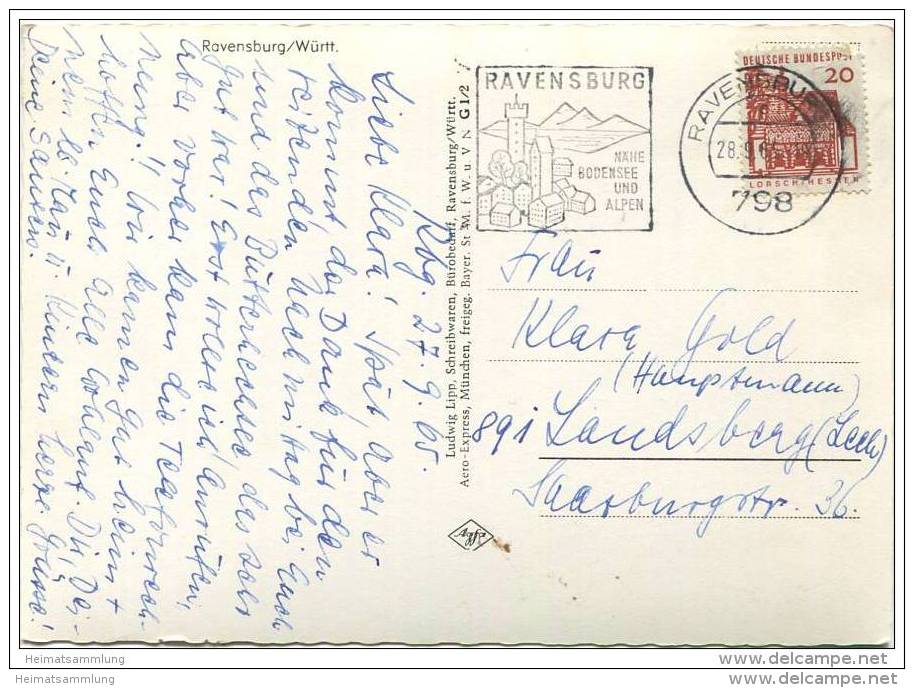 Ravensburg/Württ.
Rbg. 27.9.65.
Liebe Klara! Spät aber er
kommt der Dank für den
reizenden Nachmittag bei Euch
und das Büttenessen das sehr
gut war! Erst wollte ich anrufen,
aber vorher kam die
nung! Wir kamen gut heim +
hoffen Euch alle wohlauf. Dir, Dei-
nem lb. Mann u. Kindern herzl. Grüsse!
Deine
Ludwig Lipp, Schreibwaren, Bürobedarf, Ravensburg/Württ.
Aero-Express, München, freigeg. Bayer. St. M. f. W. u. V N G 1/2
Agfa
RAVENSBURG
NÄHE
BODENSEE
UND
ALPEN
RAVENSBURG
28.9.65
798
DEUTSCHE BUNDESPOST
20
LORSCH/HESSEN
Frau
Klara Gold
(Hauptmann)
891 Landsberg (Lech)
Saarburgstr. 36
Heimatsammlung
Heimatsammlung
www.delcampe.net
www.delcampe.net